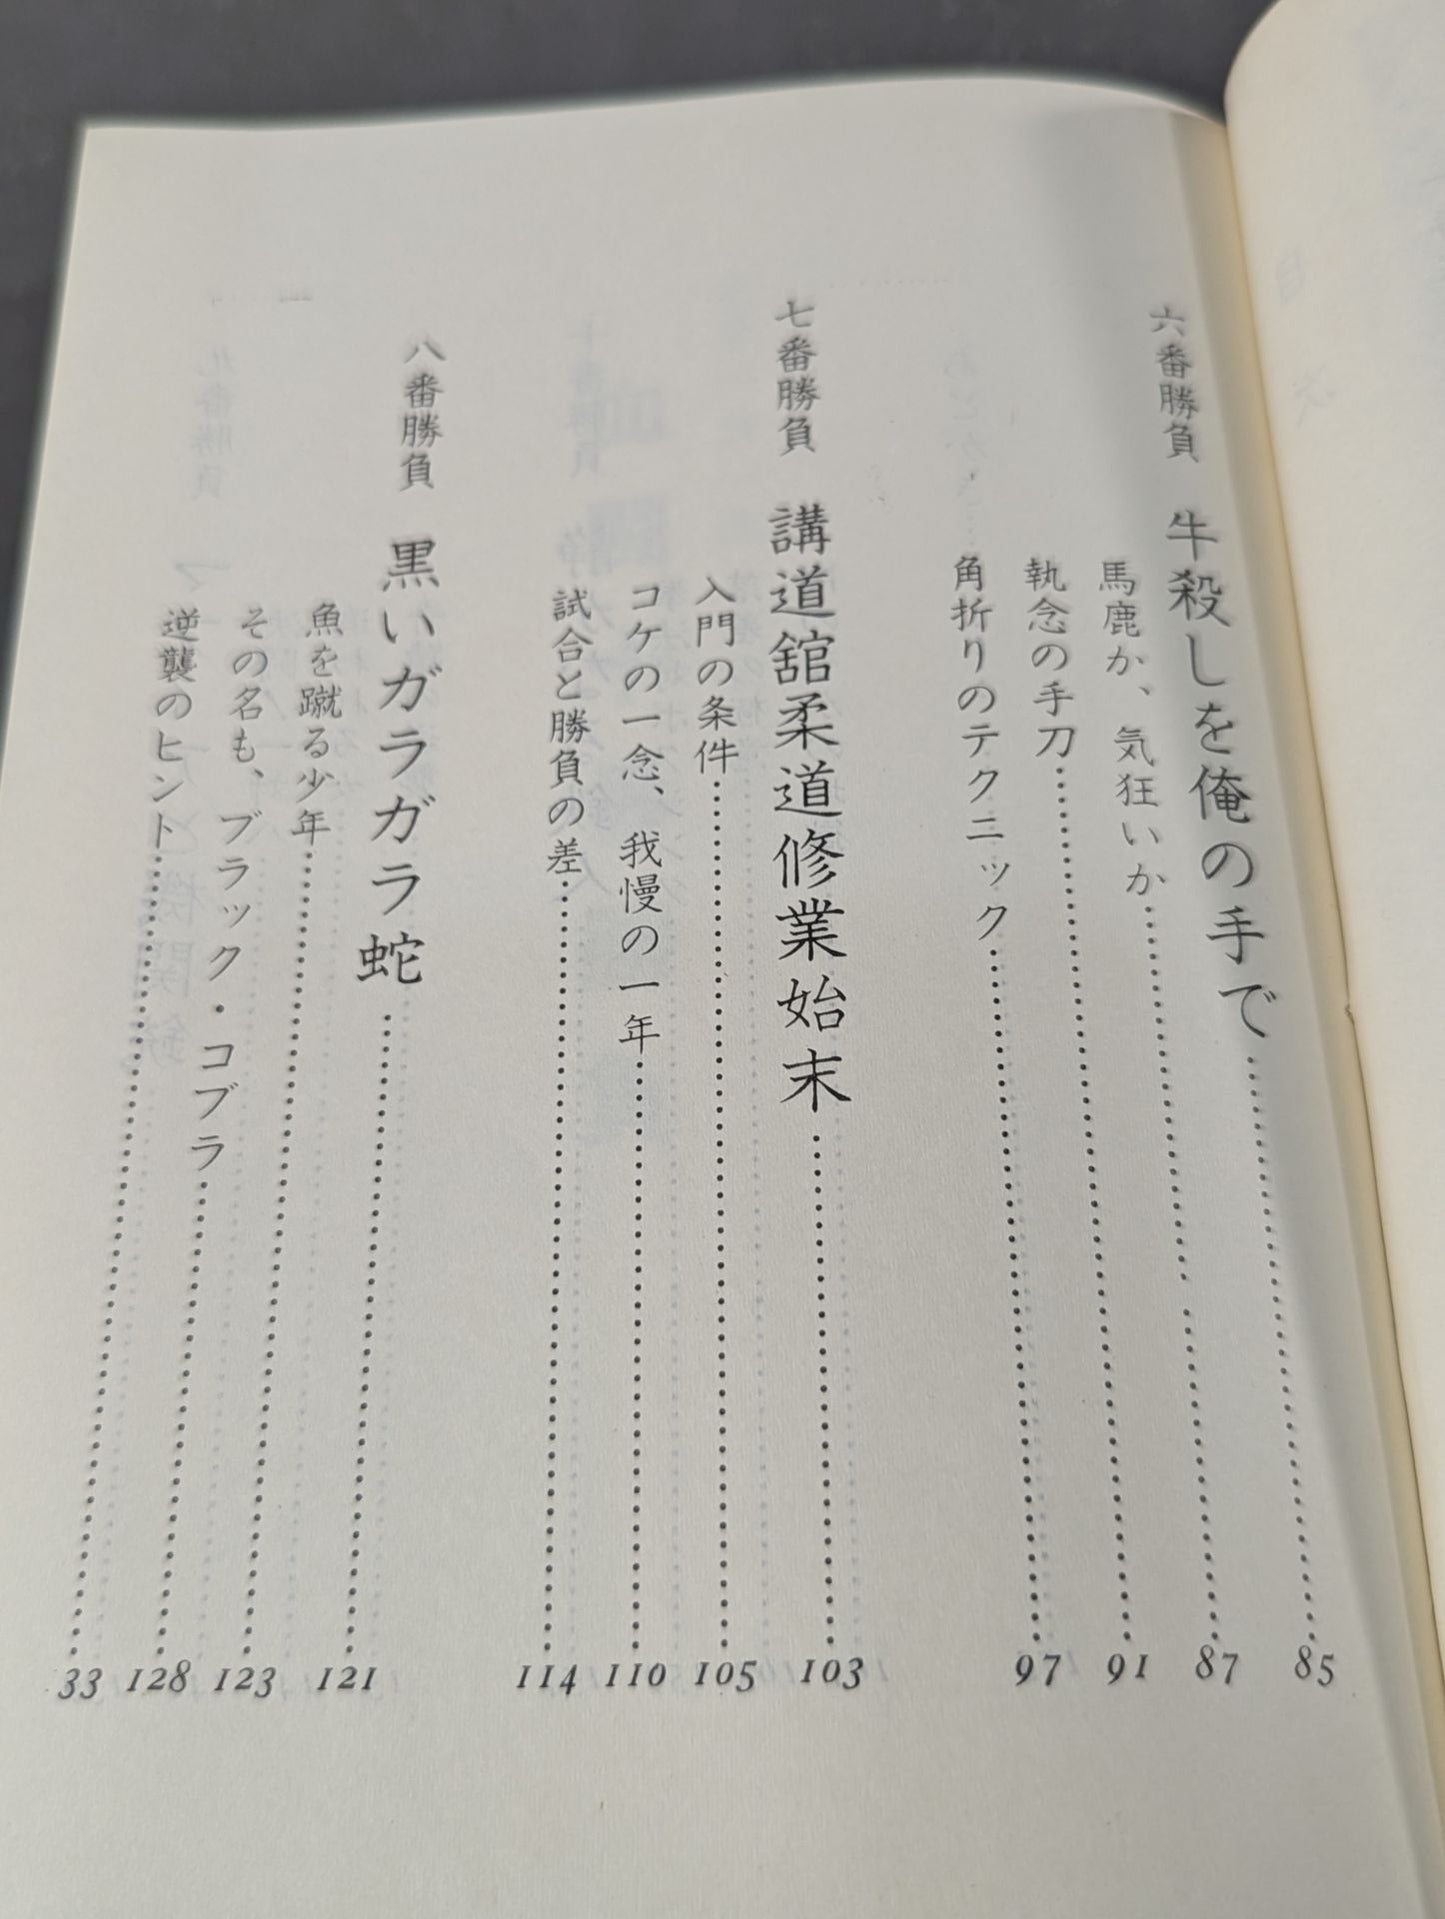 六番勝負 牛殺しを俺の手で……85
馬鹿か、気狂いか……87
執念の手刀……91
角折りのテクニック……97
七番勝負 講道舘柔道修業始末……103
入門の条件……105
コケの一念、我慢の一年……110
試合と勝負の差……114
八番勝負 黒いガラガラ蛇……121
魚を蹴る少年……123
その名も、ブラック・コブラ……128
逆襲のヒント……33